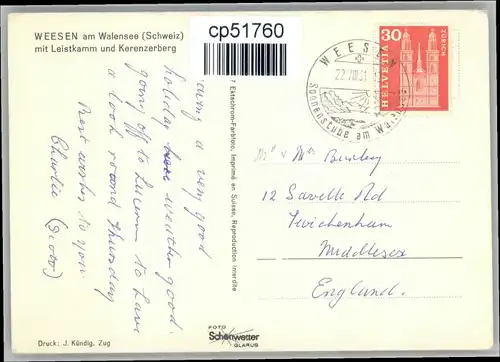 WEESEN am Walensee (Schweiz)
mit Leistkamm und Kerenzerberg
cp51760
Having a very good
holiday here weather good.
going off to Lucerne to have
a look round Thursday
Best wishes to you
Charlie (Scobi)
7 Ektachrom-Farbfoto, Imprimé en Suisse, Reproduction interdite
WEESEN
22.VIII.61
Sonnenstube am Walensee
30
HELVETIA
ZÜRICH
Mr & Mrs Burley
12 Saville Rd
Twickenham
Middlesex
England.
Druck: J. Kündig, Zug
FOTO
Schönwetter
GLARUS